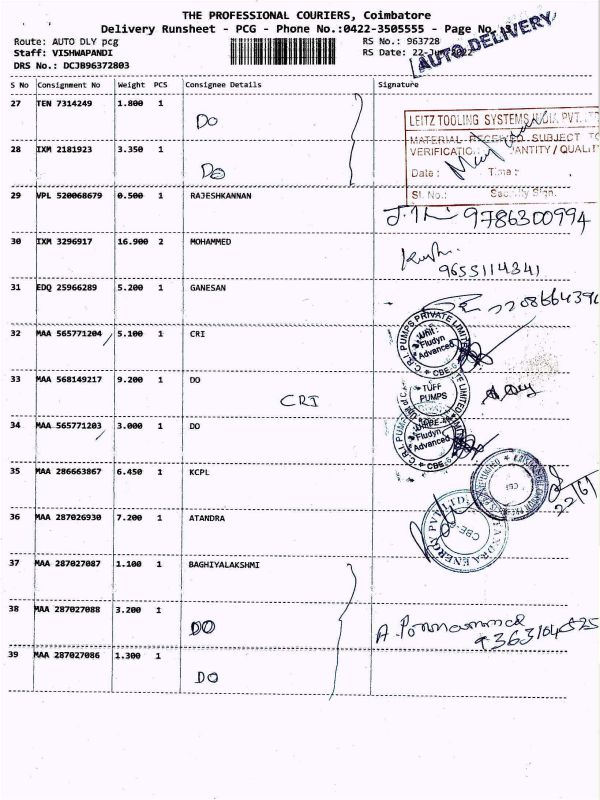 THE PROFESSIONAL COURIERS, Coimbatore
Delivery Runsheet - PCG - Phone No.:0422-3505555 - Page No.
AUTO DELIVERY
Route: AUTO DLY pcg RS No.: 963728
Staff: VISHWAPANDI RS Date: 22-Jun-2022
DRS No.: DCJB96372803
S No Consignment No Weight PCS Consignee Details Signature
27 TEN 7314249 1.800 1 DO
LEITZ TOOLING SYSTEMS INDIA PVT. LTD
MATERIAL RECEIVED SUBJECT TO
28 IXM 2181923 3.350 1 DO
VERIFICATION QUANTITY / QUALITY
Date : Time :
Sl. No.: Security Sign.
29 VPL 520068679 0.500 1 RAJESHKANNAN
9786300994
30 IXM 3296917 16.900 2 MOHAMMED
9655114341
31 EDQ 25966289 5.200 1 GANESAN
32 MAA 565771204 5.100 1 CRI
C.R.I. PUMPS PRIVATE LIMITED
Unit:
Fludyn
Advanced
CBE-6
33 MAA 568149217 9.200 1 DO
CRI
TUFF
PUMPS
34 MAA 565771203 3.000 1 DO
C.R.I. PUMPS
Fludyn
Advanced
CBE
35 MAA 286663867 6.450 1 KCPL
22/6/
36 MAA 287026930 7.200 1 ATANDRA
ATANDRA ENERGY PVT. LTD.
CBE
37 MAA 287027087 1.100 1 BAGHIYALAKSHMI
38 MAA 287027088 3.200 1 DO
A. Ponnammal
39 MAA 287027086 1.300 1 DO